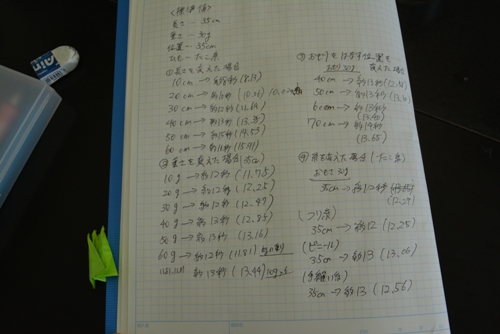 <標準値>
長さ ー 35cm
重さ ー 30g
位置 ー 35cm
ひも ー たこ糸
①長さを変えた場合
10cm → 約8秒 (8.13)
20cm → 約10秒 (10.31)
30cm → 約12秒 (11.69)
40cm → 約13秒
50cm → 約15秒 (14.53)
60cm → 約16秒 (15.91)
②重さを変えた場合
10g → 約12秒 (11.75)
20g → 約12秒 (12.25)
30g → 約12秒 (12.47)
40g → 約13秒 (12.85)
50g → 約13秒 (13.16)
60g → 約12秒 (11.81)
約13秒 (13.44)
③おもりをはなす位置を
変えた場合
40cm → 約13秒
50cm → 約13秒
60cm → 約13秒
70cm → 約14秒
(13.65)
④ 糸を変えた場合 (たこ糸)
おもり 30g
35cm → 約12秒
(12.29)
(つり糸)
35cm → 約12 (12.25)
(ビニール)
35cm → 約13 (13.06)
35cm → 約13 (12.56)